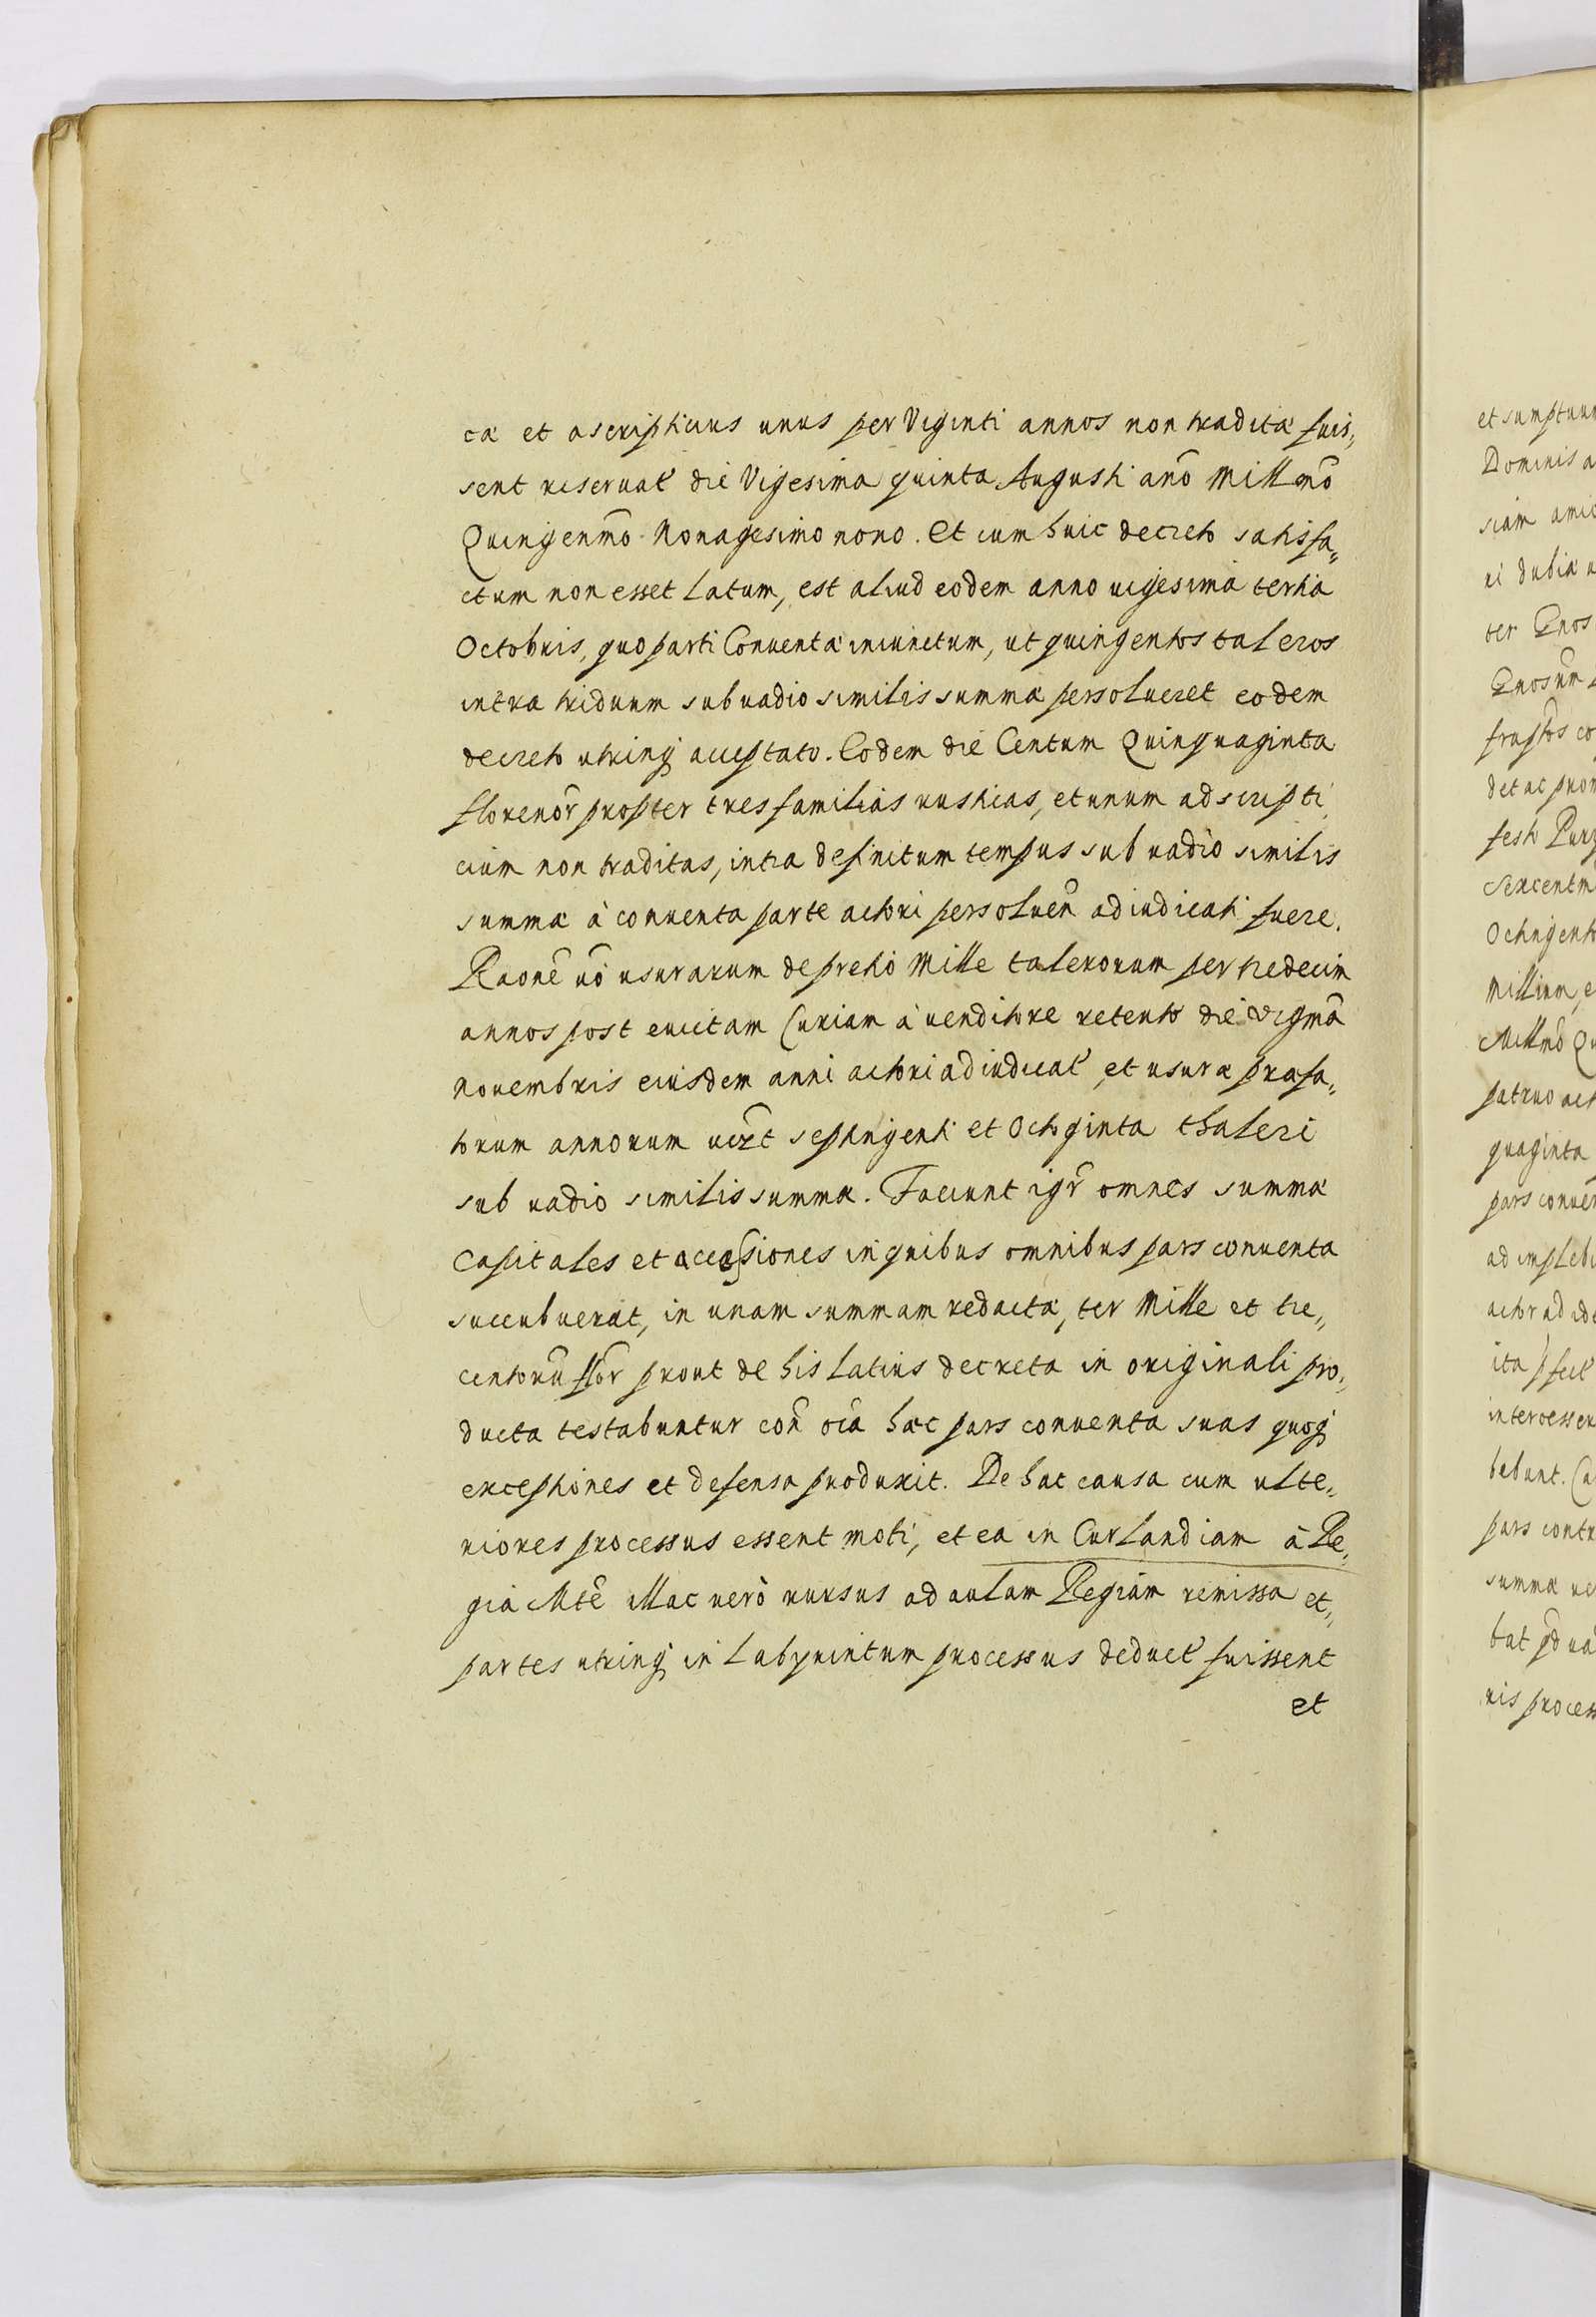 cæ et ascriptitius unus per Viginti annos non traditæ fuis„
sent reseruat' die Vigesima quinta Augusti año Millmõ
Quingenmõ Nonagesimo nono. Et cum huic decreto satisfa„
ctum non esset Latum, est aliud eodem anno uigesima tertia
Octobris, quo parti Conuentæ iniunctum, ut quingentos taleros
intra triduum sub uadio similis summæ persolueret eodem
decreto utrinq acceptato. Eodem die Centum Quinquaginta
florenor̃ propter tres familias rusticas, et unum adscripti„
cium non traditas, intra definitum tempus sub uadio similis
summæ à conuenta parte actori persoluen̄ adiudicati fuere.
Raonē uō usurarum de pretio Mille talerorum per tredecim
annos post euictam Curiam à uenditore retento die vigmā
nouembris eiusdem anni actori adiudicat', et usuræ præfa„
torum annorum uizt septingenti et Octoginta thaleri
sub uadio similis summæ. Faciunt igr̃ omnes summæ
Capitales et accessiones in quibus omnibus pars conuenta
succubuerat, in unam summam redactæ, ter Mille et tre„
centorū flor̃ prout de his latius decreta in originali pro„
ducta testabuntur con̄ oīa hæc pars conuenta suas quoq
exceptiones et defensa produxit. De hac causa cum ulte„
riores processus essent moti, et ea in Curlandiam à Re„
gia Mtē illac verò rursus ad aulam Regiam remissa et„
partes utrinq in Labyrintum processus deduct' fuissent
et
et sumptuum
Dominis a
siam amic
ri dubia u
ter Enos
det ac prom
Ochngento
Millium, e
Millmõ Qu
patruo act
quaginta
pars conuen
ad implebi
actor ad id
interesse
bebant. Ca
pars contr
summæ ue
ris process